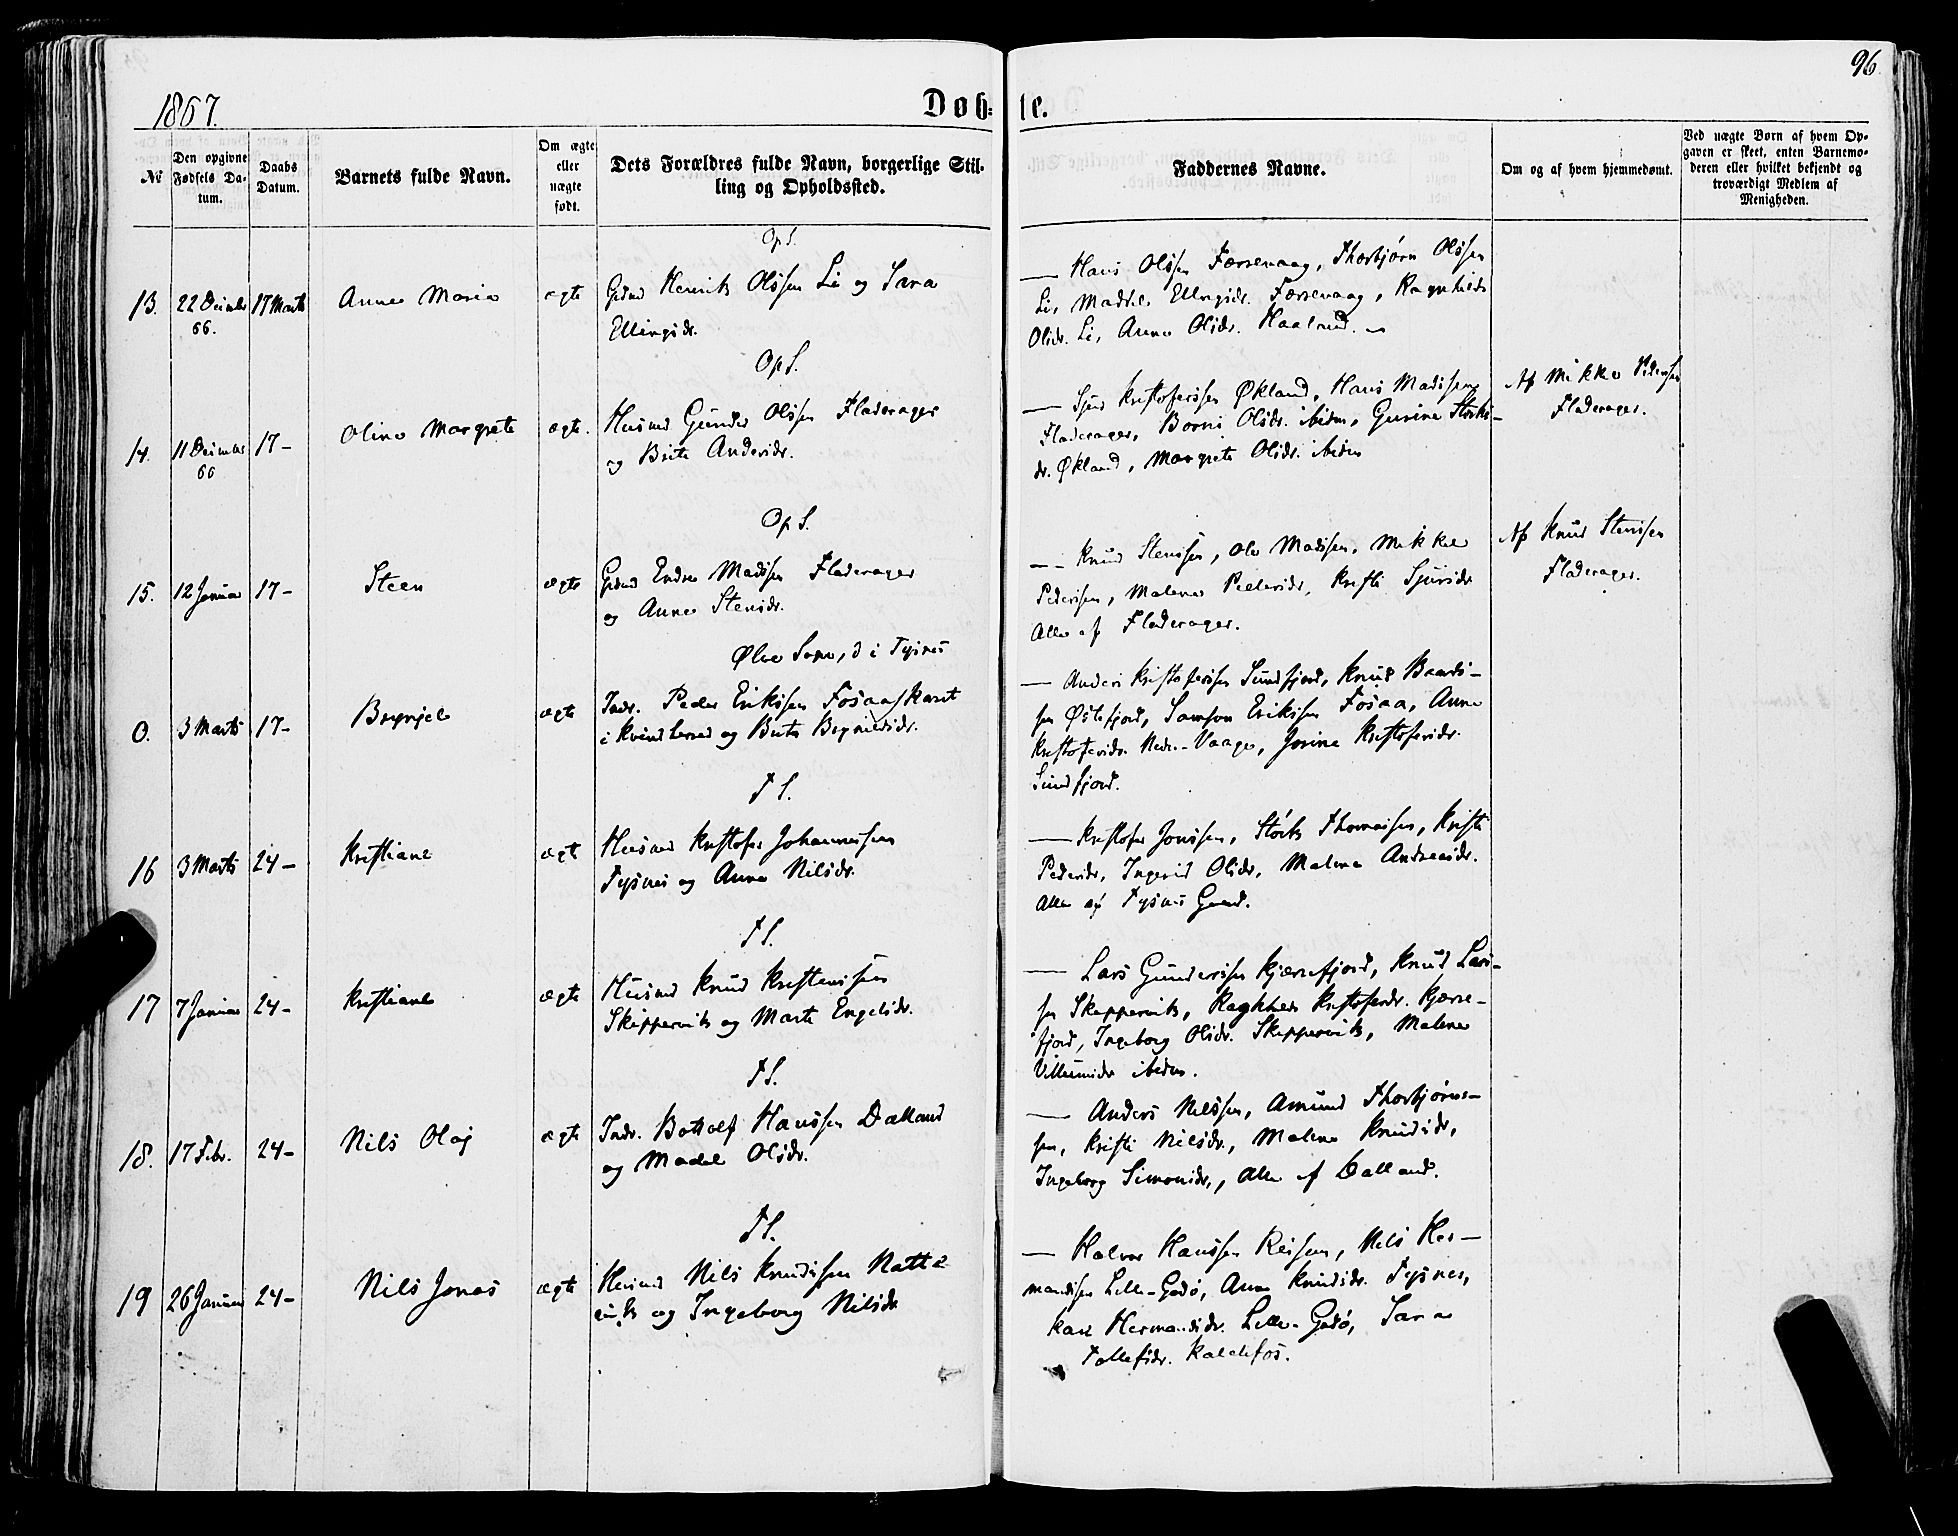 96.
1867.
Døb-te.
№
Den opgivne Fødsels Da-tum.
Daabs Datum.
Barnets fulde Navn.
Om ægte eller uægte født.
Dets Forældres fulde Navn, borgerlige Stil-
ling og Opholdssted.
Faddernes Navne.
Om og af hvem hjemmedøbt.
Ved uægte Børn af hvem Op-
gaven er skeet, enten Barnemo-
deren eller hvilket bekjendt og
troværdigt Medlem af
Menigheden.
OpS.
13. 22 Decimber 66. 17 Marts Anna Maria ægte
Gdmd Henrik Olssen Li og Sara
Ellingsdr.
— Hans Olssen Færsevaag, Thorbjørn Olssen
Li, Madsel Ellingsdr. Færsevaag, Ragnhilde
Olsdr. Li, Anna Olsdr. Haaland.
OpS.
14. 11 Decimber 66 17- Olina Margrete ægte.
Husmd Gunder Olssen Fladerager
og Brite Andersdr.
— Sjur Kristofersen Økland, Hans Madssen
Fladerager, Borni Olsdr. ibidem, Gurine Storks-
dr. Økland, Margrete Olsdr. ibidem
Af Mikkel Pedersen
Fladerager.
OpS.
15. 12 Januar 17- Steen ægte
Gdmd Endre Madssen Fladerager
og Anna Stensdr.
— Knud Stenssen, Ole Madssen, Mikkel
Pederssen, Malena Pedersdr, Kristi Sjursdr
Alle af Fladerager.
Af Knud Stenssen
Fladerager.
Ølve Sogn, d i Tysnes
0. 3 Marts 17- Brynjel ægte
Indr. Peder Erikssen Fosaaskaret
i Kvindherred og Brita Brynildsdr.
— Anders Kristoferssen Sundfjord, Knud Baards-
sen Østefjord, Samson Erikssen Fosaa, Anna
Kristofersdr. Nedre-Vaage, Josina Kristofersdr.
Sundfjord.
TS.
16 3 Marts 24- Kristiane ægte
Husmd Kristofer Johannessen
Tysnes og Anna Nilsdr.
— Kristofer Jonssen, Størk Thomassen, Kristi
Pedersdr, Ingerid Olsdr, Malena Andreasdr.
Alle af Tysnes Gaard.
TS.
17 7 Januar 24- Kristiane ægte
Husmd Knud Kristenssen
Skippervik og Marta Engelsdr.
— Lars Gunderssen Kjærrefjord, Knud Lars-
sen Skippervik, Ragnhild Kristofersdr. Kjærre-
fjord, Ingeborg Olsdr. Skippervik, Malena
Villumsdr ibidem.
TS.
18. 17 Febr. 24- Nils Olaj ægte
Indr. Bottolf Hanssen Dalland
og Madel Olsdr.
— Anders Nilssen, Amund Thorbjørns-
sen, Kristi Nilsdr., Malena Knudsdr,
Ingeborg Simonsdr., Alle af Dalland.
TS.
19 26 Januar 24- Nils Jonas ægte
Husmd Nils Knudssen Natte-
vik og Ingeborg Nilsdr
— Halvor Hanssen Reisen, Nils Her-
mandsen Lille-Godø, Anna Knudsdr. Tysnes,
Kari Hermandsdr. Lille-Godø, Sara
Tollefsdr. Kaldefos.